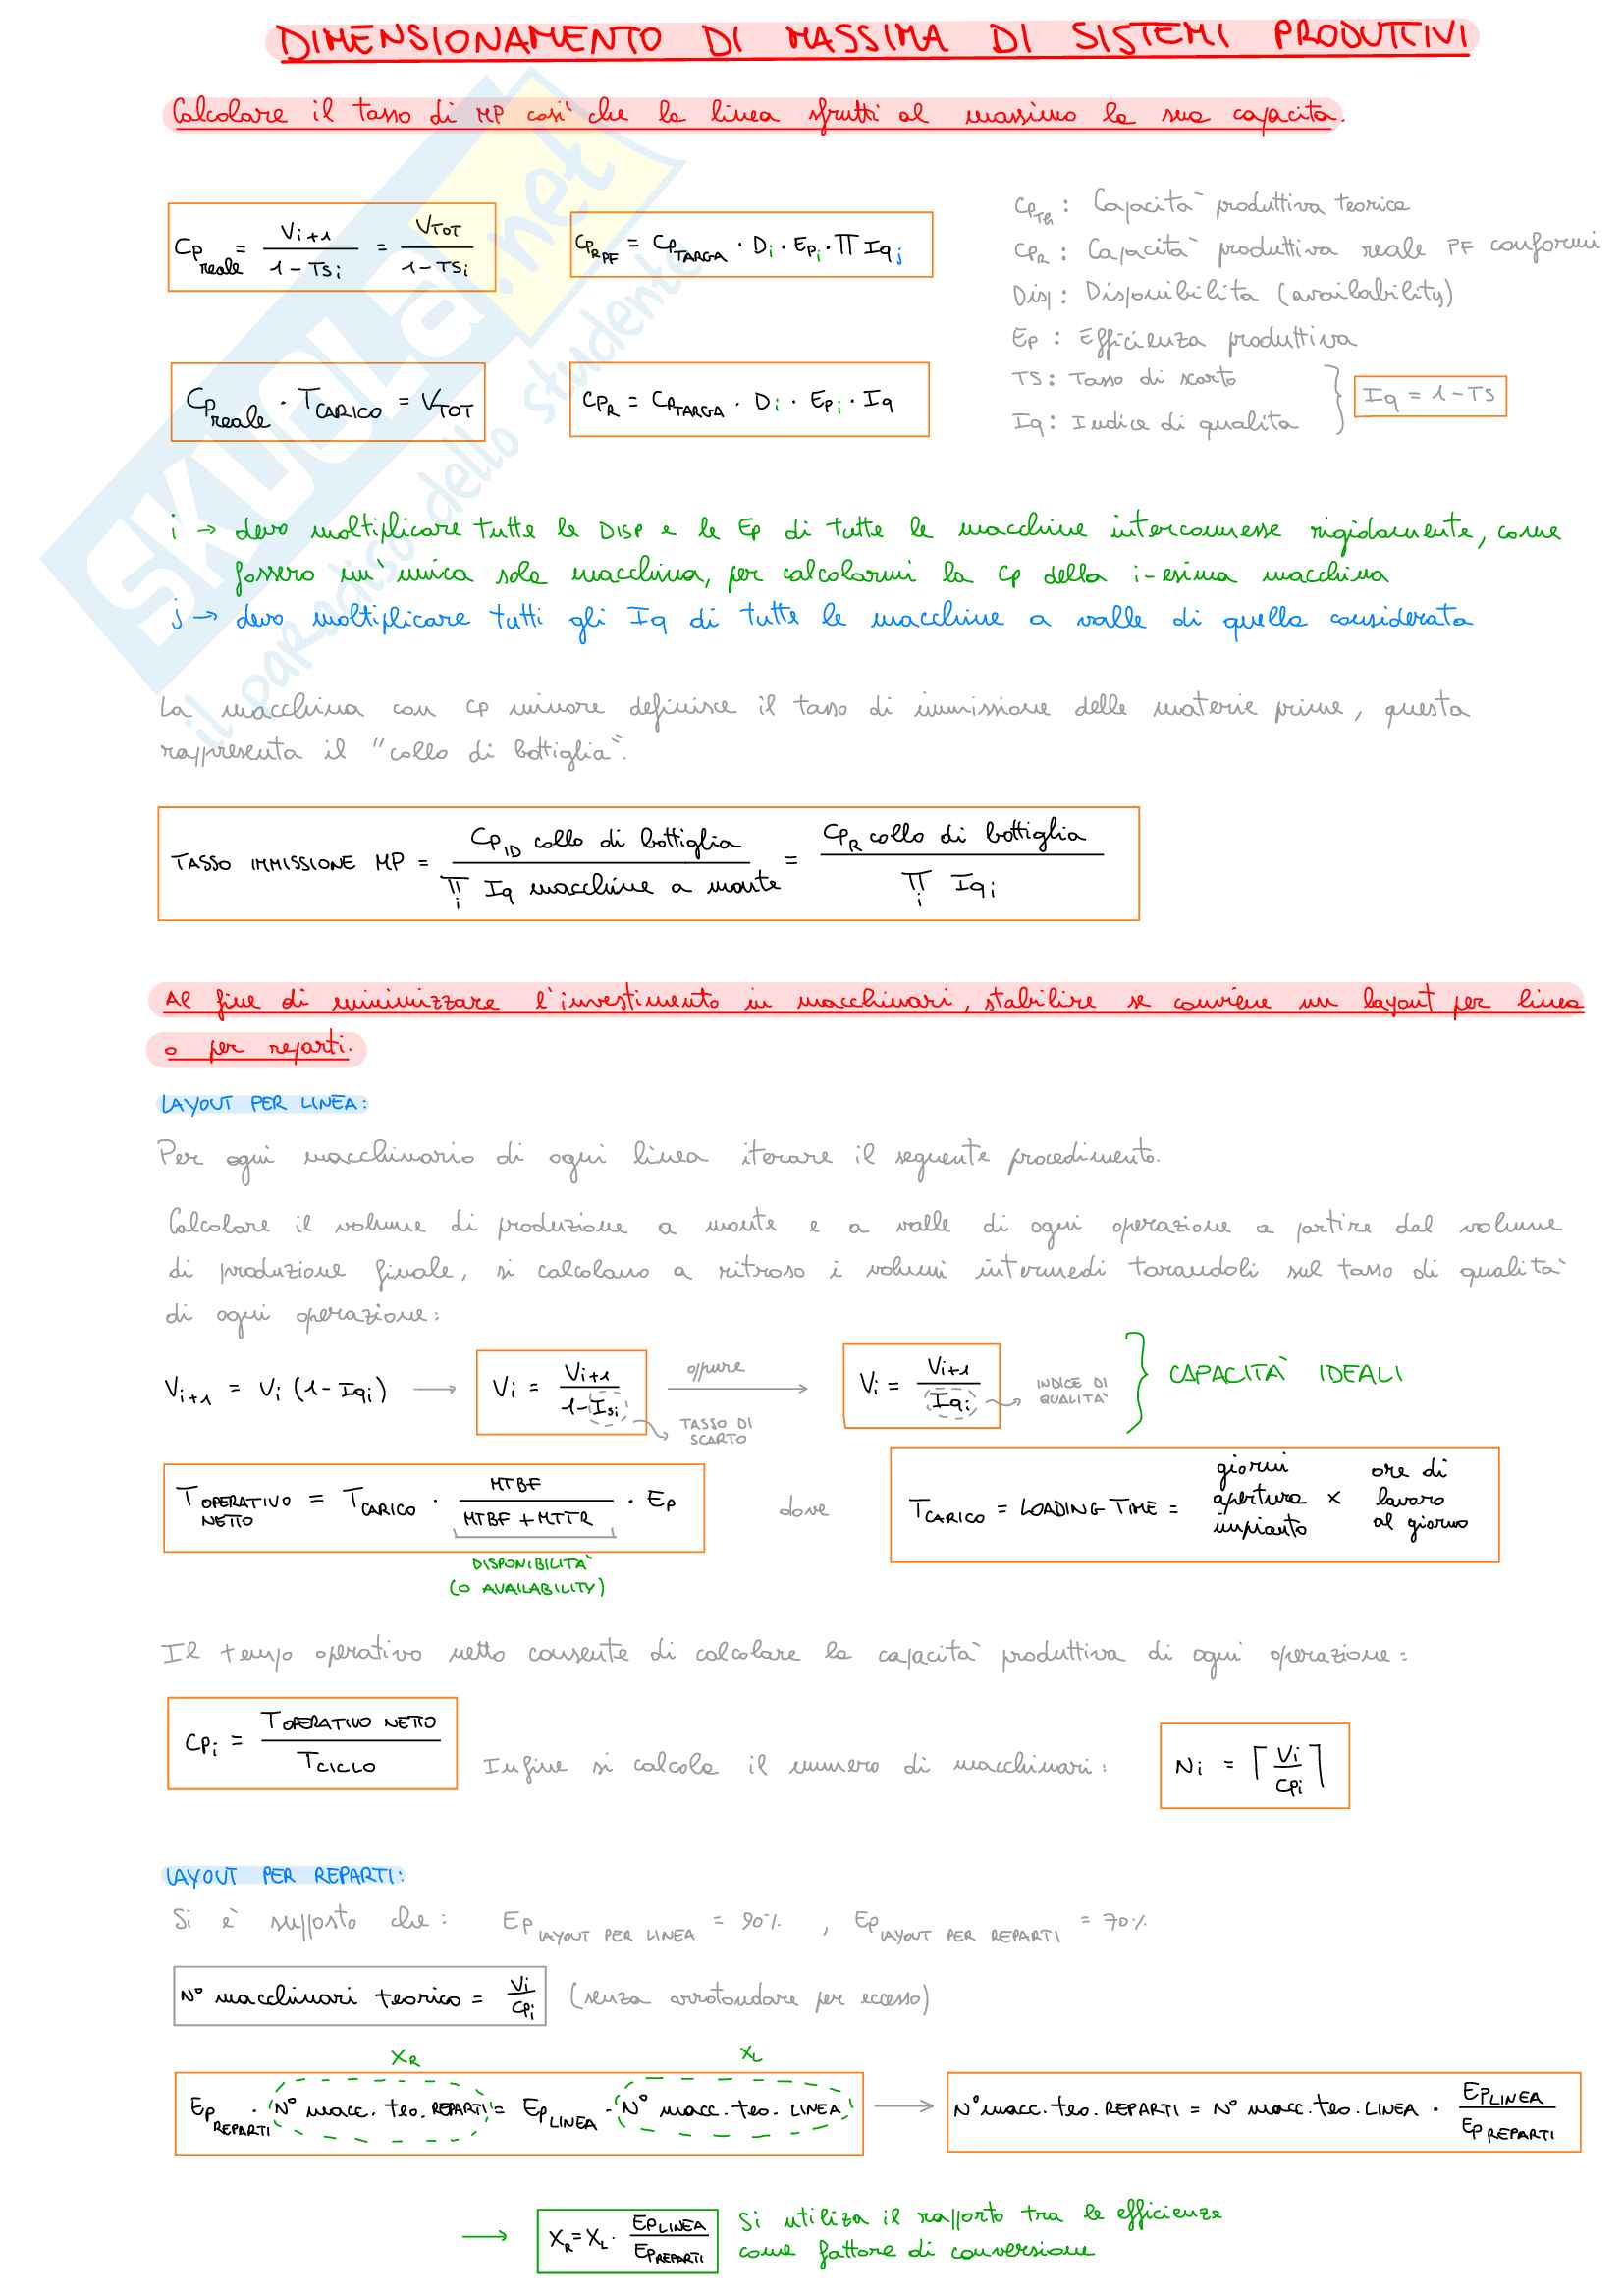 DIMENSIONAMENTO DI MASSIMA DI SISTEMI PRODUTTIVI
Calcolare il tasso di MP così che la linea sfrutti al massimo la sua capacità.
Cp reale = Vi+1 / (1-TSi) = VTOT / (1-TSi)
CpR PF = CpTARGA · Di · Epi · ∏ Iqj
CpTG : Capacità produttiva teorica
CpR : Capacità produttiva reale PF conformi
Disp : Disponibilita (availability)
Ep : Efficienza produttiva
Cp reale · TCARICO = VTOT
CpR = CpTARGA · Di · Epi · Iq
TS : Tasso di scarto
Iq : Indice di qualita
Iq = 1-TS
i → devo moltiplicare tutte le DISP e le Ep di tutte le macchine interconnesse rigidamente, come
fossero un'unica sola macchina, per calcolarmi la Cp della i-esima macchina
j → devo moltiplicare tutti gli Iq di tutte le macchine a valle di quella considerata
La macchina con Cp minore definisce il tasso di immissione delle materie prime, questa
rappresenta il "collo di bottiglia".
TASSO IMMISSIONE MP = CpID collo di bottiglia / ∏i Iq macchine a monte = CpR collo di bottiglia / ∏i Iqi
Al fine di minimizzare l'investimento in macchinari, stabilire se conviene un layout per linea
o per reparti.
LAYOUT PER LINEA:
Per ogni macchinario di ogni linea iterare il seguente procedimento.
Calcolare il volume di produzione a monte e a valle di ogni operazione a partire dal volume
di produzione finale, si calcolano a ritroso i volumi intermedi tarandoli sul tasso di qualità
di ogni operazione:
Vi+1 = Vi (1-Iqi) → Vi = Vi+1 / (1-Isi) oppure → Vi = Vi+1 / Iqi
TASSO DI SCARTO
INDICE DI QUALITÀ
CAPACITÀ IDEALI
TOPERATIVO NETTO = TCARICO · MTBF / (MTBF + MTTR) · Ep
DISPONIBILITÀ
(O AVAILABILITY)
dove
TCARICO = LOADING TIME = giorni apertura impianto × ore di lavoro al giorno
Il tempo operativo netto consente di calcolare la capacità produttiva di ogni operazione:
Cpi = TOPERATIVO NETTO / TCICLO
Infine si calcola il numero di macchinari:
Ni = ⌈Vi / Cpi⌉
LAYOUT PER REPARTI:
Si è supposto che: Ep LAYOUT PER LINEA = 90% , Ep LAYOUT PER REPARTI = 70%
N° macchinari teorico = Vi / Cpi (senza arrotondare per eccesso)
XR
XL
Ep REPARTI · N° macc. teo. REPARTI = Ep LINEA · N° macc. teo. LINEA → N° macc. teo. REPARTI = N° macc. teo. LINEA · Ep LINEA / Ep REPARTI
→ XR = XL · Ep LINEA / Ep REPARTI
Si utiliza il rapporto tra le efficienze
come fattore di conversione
SKUOLA.net
il paradiso dello studente